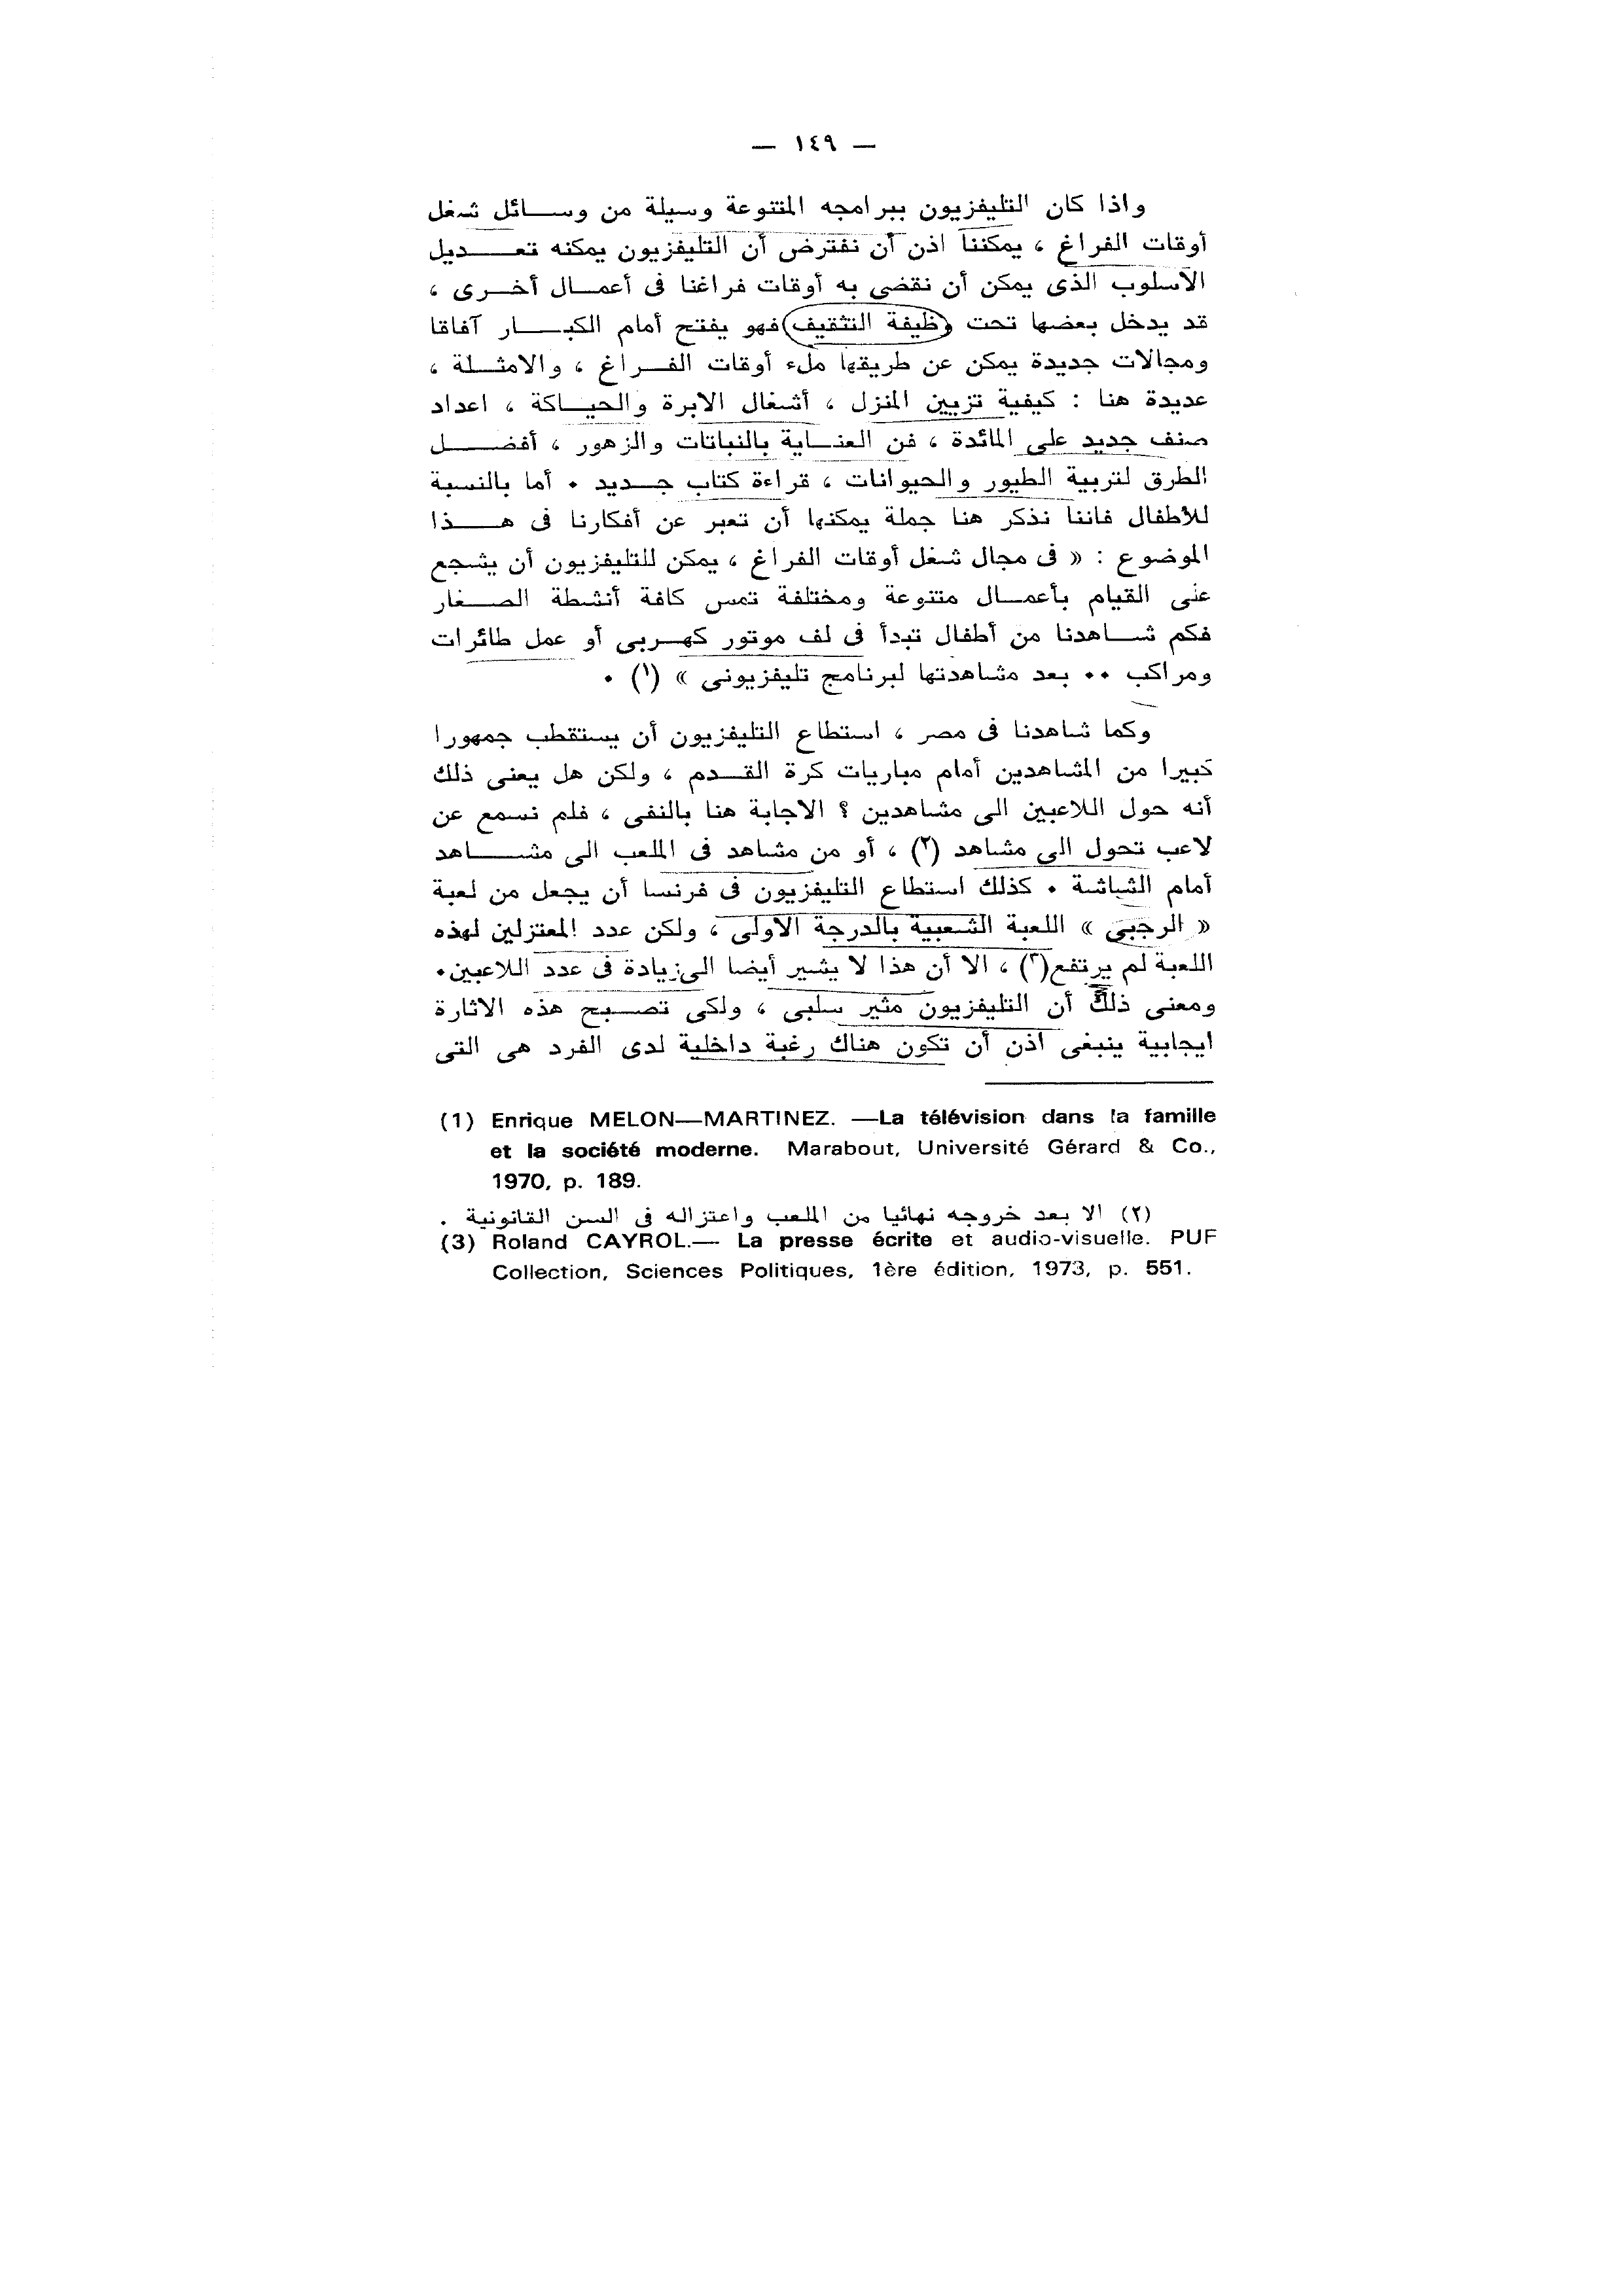 — ١٤٩ —
واذا كان التليفزيون ببرامجه المتنوعة وسيلة من وسائل شغل
أوقات الفراغ ، يمكننا اذن أن نفترض أن التليفزيون يمكنه تعديل
الأسلوب الذى يمكن أن نقضى به أوقات فراغنا فى أعمال أخرى ،
قد يدخل بعضها تحت وظيفة التثقيف فهو يفتح أمام الكبار آفاقا
ومجالات جديدة يمكن عن طريقها ملء أوقات الفراغ ، والامثلة ،
عديدة هنا : كيفية تزيين المنزل ، أشغال الابرة والحياكة ، اعداد
صنف جديد على المائدة ، فن العناية بالنباتات والزهور ، أفضل
الطرق لتربية الطيور والحيوانات ، قراءة كتاب جديد . أما بالنسبة
للأطفال فاننا نذكر هنا جملة يمكنها أن تعبر عن أفكارنا فى هذا
الموضوع : « فى مجال شغل أوقات الفراغ ، يمكن للتليفزيون أن يشجع
على القيام بأعمال متنوعة ومختلفة تمس كافة أنشطة الصغار
فكم شاهدنا من أطفال تبدأ فى لف موتور كهربى أو عمل طائرات
ومراكب .. بعد مشاهدتها لبرنامج تليفزيونى » (١) .
وكما شاهدنا فى مصر ، استطاع التليفزيون أن يستقطب جمهورا
كبيرا من المشاهدين أمام مباريات كرة القدم ، ولكن هل يعنى ذلك
أنه حول اللاعبين الى مشاهدين ؟ الاجابة هنا بالنفى ، فلم نسمع عن
لاعب تحول الى مشاهد (٢) ، أو من مشاهد فى الملعب الى مشاهد
أمام الشاشة . كذلك استطاع التليفزيون فى فرنسا أن يجعل من لعبة
« الرجبى » اللعبة الشعبية بالدرجة الأولى ، ولكن عدد المعتزلين لهذه
اللعبة لم يرتفع(٣) ، الا أن هذا لا يشير أيضا الى زيادة فى عدد اللاعبين.
ومعنى ذلك أن التليفزيون مثير سلبى ، ولكى تصبح هذه الاثارة
ايجابية ينبغى اذن أن تكون هناك رغبة داخلية لدى الفرد هى التى
(1) Enrique MELON—MARTINEZ. —La télévision dans la famille
et la société moderne. Marabout, Université Gérard & Co.,
1970, p. 189.
(٢) الا بعد خروجه نهائيا من الملعب واعتزاله فى السن القانونية .
(3) Roland CAYROL.— La presse écrite et audio-visuelle. PUF
Collection, Sciences Politiques, 1ère édition, 1973, p. 551.